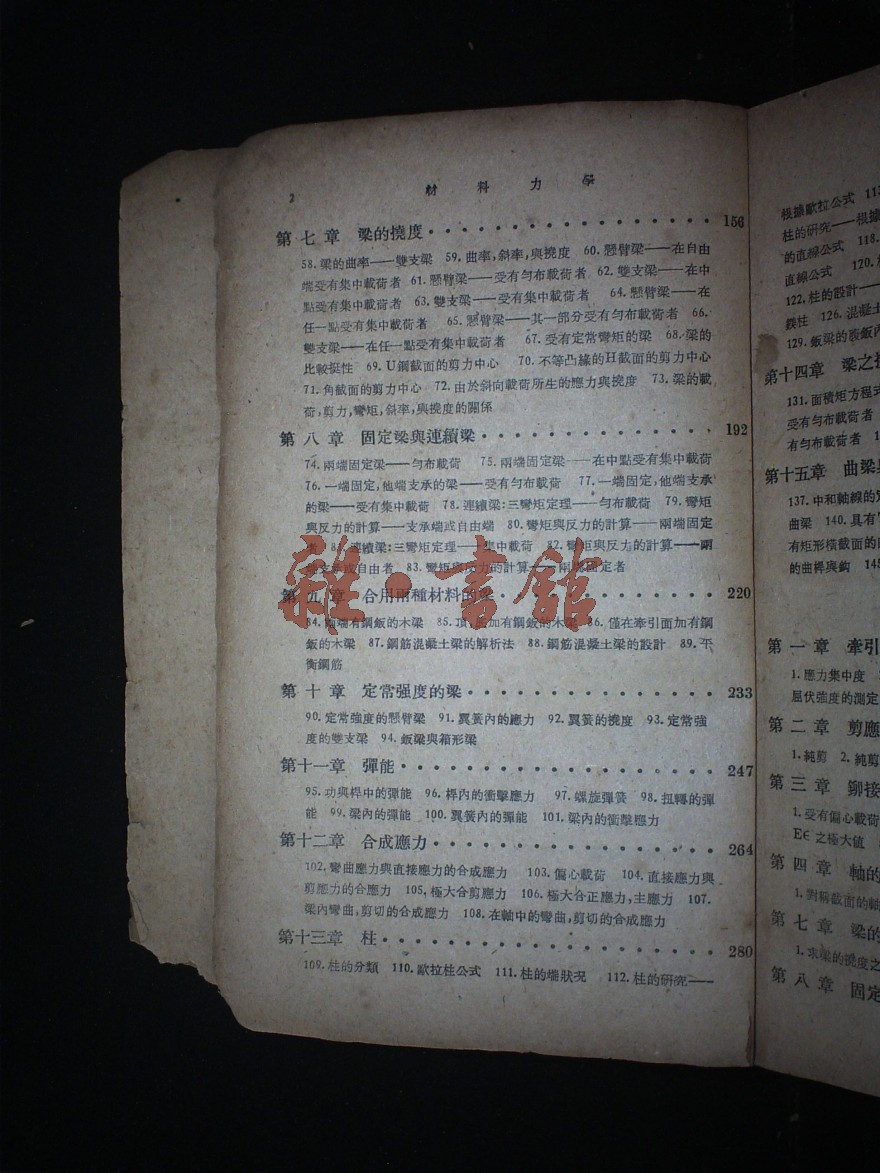 2
材料力學
第七章 梁的撓度 156
58.梁的曲率——雙支梁 59.曲率,斜率,與撓度 60.懸臂梁——在自由
端受有集中載荷者 61.懸臂梁——受有勻布載荷者 62.雙支梁——在中
點受有集中載荷者 63.雙支梁——受有集中載荷者 64.懸臂梁——在
任一點受有集中載荷者 65.懸臂梁——其一部分受有勻布載荷者 66.
雙支梁——在任一點受有集中載荷者 67.受有定常彎矩的梁 68.梁的
比較挺性 69.U鋼截面的剪力中心 70.不等凸緣的H截面的剪力中心
71.角截面的剪力中心 72.由於斜向載荷所生的應力與撓度 73.梁的載
荷,剪力,彎矩,斜率,與撓度的關係
第八章 固定梁與連續梁 192
74.兩端固定梁——勻布載荷 75.兩端固定梁——在中點受有集中載荷
76.一端固定,他端支承的梁——受有勻布載荷 77.一端固定,他端支承
的梁——受有集中載荷 78.連續梁:三彎矩定理——勻布載荷 79.彎矩
與反力的計算——支承端或自由端 80.彎矩與反力的計算——兩端固定
連續梁:三彎矩定理——集中載荷 82.彎矩與反力的計算——兩
支承或自由者 83.彎矩與反力的計算——兩端固定者
雜·書館
第九章 合用兩種材料的梁 220
84.兩端有鋼鈑的木梁 85.頂 加有鋼鈑的木梁 86.僅在牽引面加有鋼
鈑的木梁 87.鋼筋混凝土梁的解析法 88.鋼筋混凝土梁的設計 89.平
衡鋼筋
第十章 定常强度的梁 233
90.定常強度的懸臂梁 91.翼簧內的應力 92.翼簧的撓度 93.定常強
度的雙支梁 94.鈑梁與箱形梁
第十一章 彈能 247
95.功與桿中的彈能 96.桿內的衝擊應力 97.螺旋彈簧 98.扭轉的彈
能 99.梁內的彈能 100.翼簧內的彈能 101.梁內的衝擊應力
第十二章 合成應力 264
102.彎曲應力與直接應力的合成應力 103.偏心載荷 104.直接應力與
剪應力的合應力 105.極大合剪應力 106.極大合正應力,主應力 107.
梁內彎曲,剪切的合成應力 108.在軸中的彎曲,剪切的合成應力
第十三章 柱 280
109.柱的分類 110.歐拉柱公式 111.柱的端狀況 112.柱的研究——
根據歐拉公式 113
柱的研究——根據
的直線公式 118.
直線公式 120.
122.柱的設計——
鏷柱 126.混凝土
129.鈑梁的
第十四章 梁之
131.面積矩方程式
受有勻布載荷者
有勻布載荷者
第十五章 曲梁與
137.中和軸線的
曲梁 140.具有
有矩形橫截面的
的曲桿與鈎 145
第一章 牽引
1.應力集中度
屈伏強度的測定
第二章 剪應
1.純剪 2.純剪
第三章 鉚接
1.受有偏心載荷
E∈之極大值
第四章 軸的
1.對稱截面的軸
第七章 梁的
1.求梁的撓度之
第八章 固定